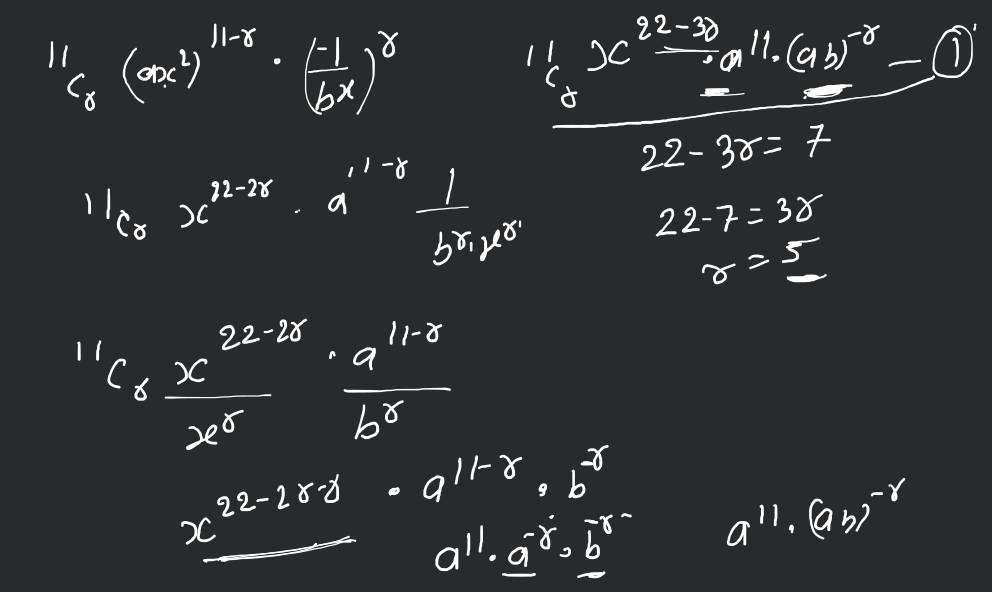 ¹¹C_r (ax²)^{11-r} · (-1/bx)^r
¹¹C_r x^{22-2r} · a^{11-r} 1/b^r·x^r
¹¹C_r x^{22-2r}/x^r · a^{11-r}/b^r
x^{22-2r-r} · a^{11-r} · b^{-r}
a^{11} · a^{-r} · b^{-r}
a^{11} · (ab)^{-r}
¹¹C_r x^{22-3r} · a^{11} · (ab)^{-r} — ①
22-3r = 7
22-7 = 3r
r = 5